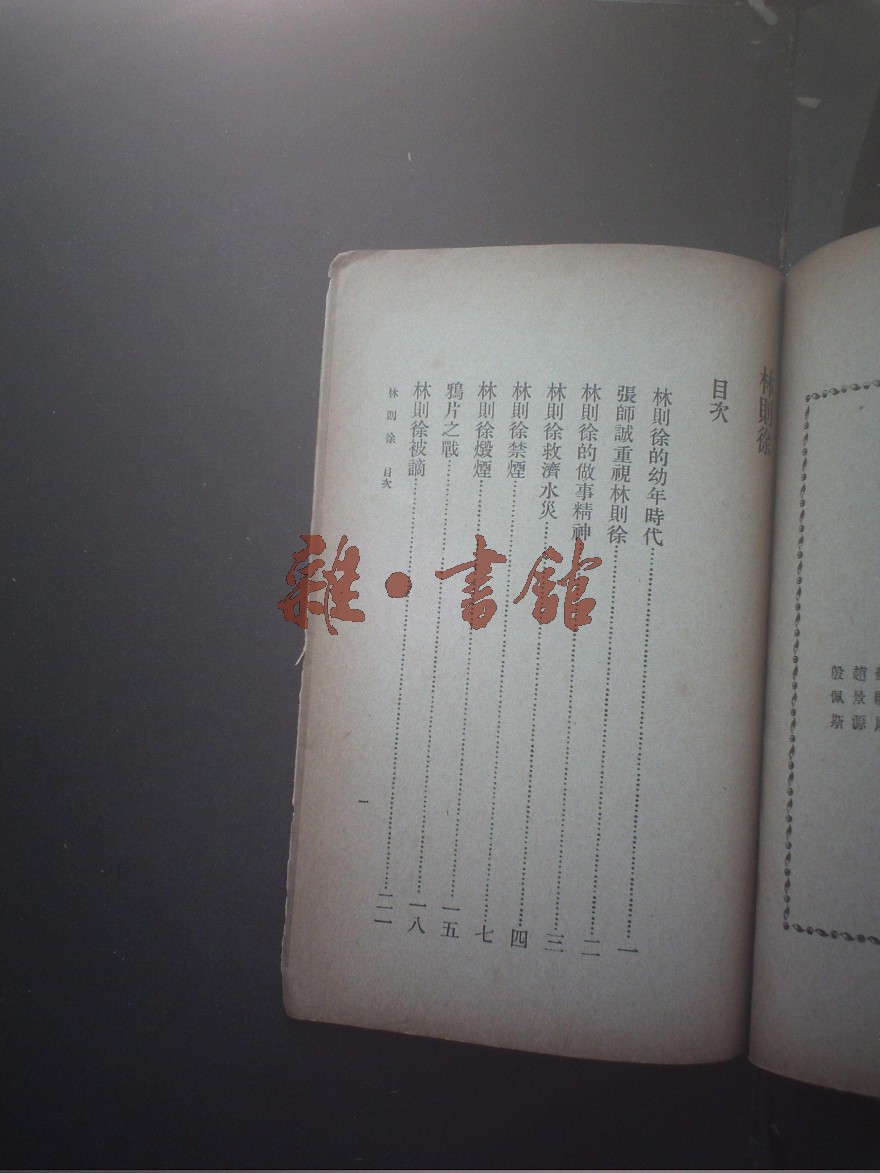 趙景源
殷佩斯
林則徐
目次
林則徐的幼年時代……一
張師誠重視林則徐……二
林則徐的做事精神……三
林則徐救濟水災……四
林則徐禁煙……七
林則徐燬煙……一五
鴉片之戰……一八
林則徐被謫……二一
林則徐 目次
一
雜·書館